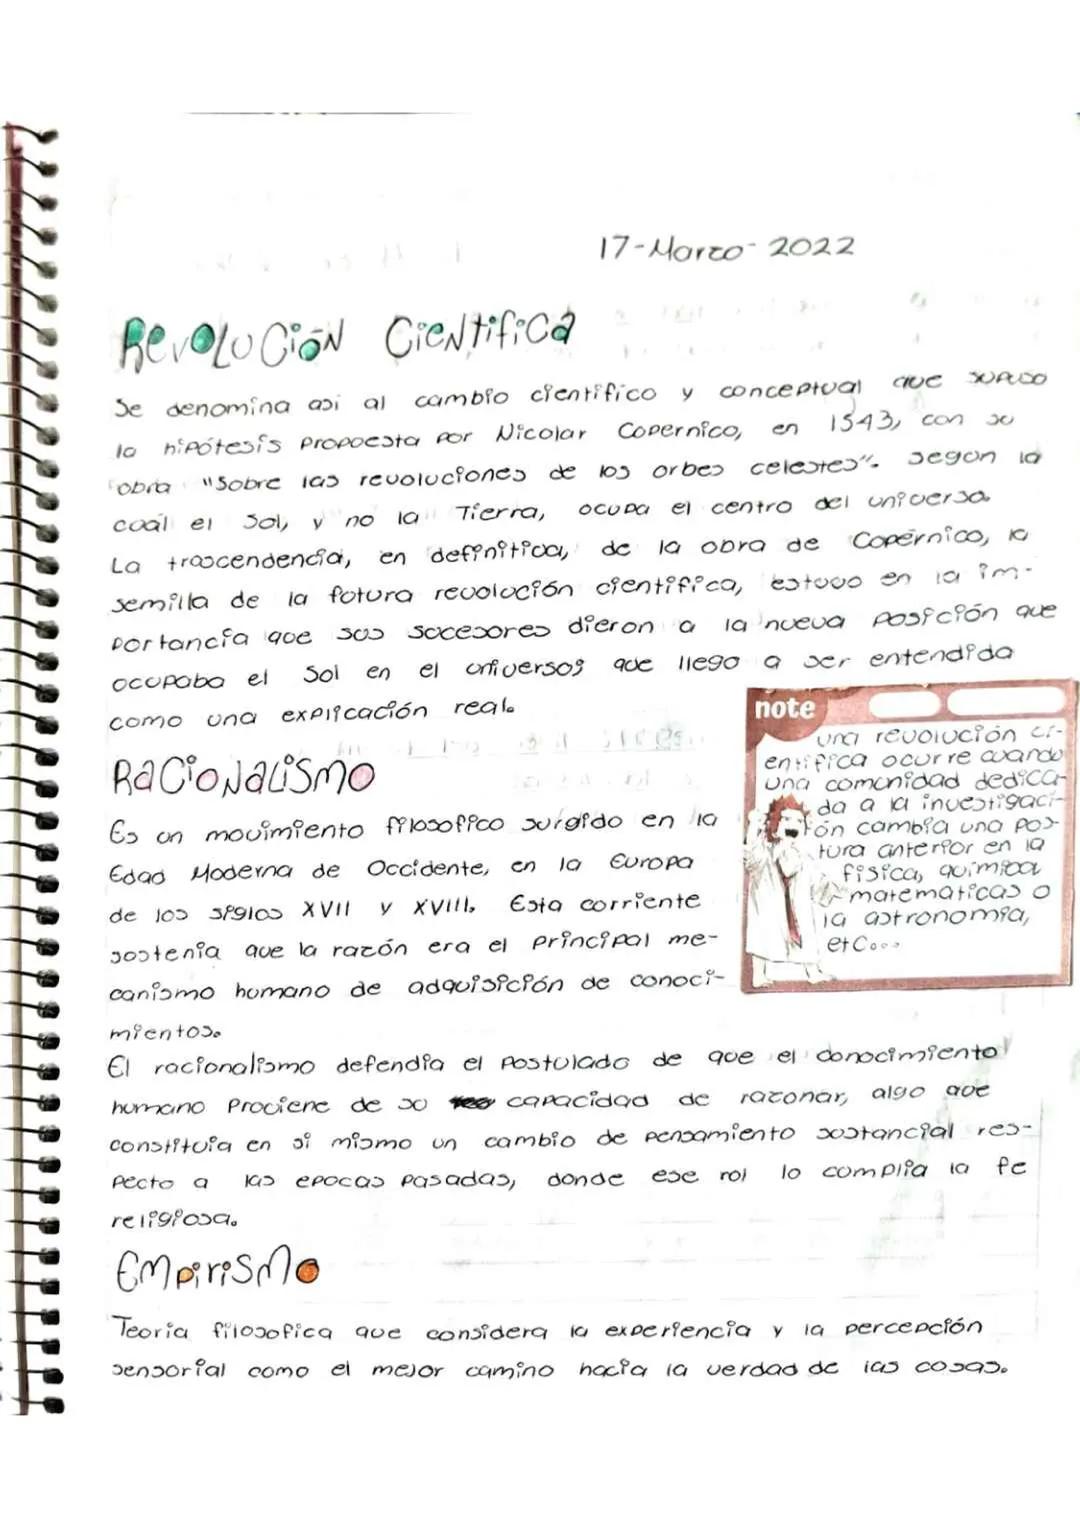 17-Marzo-2022
Revolución Científica
Se denomina asi al cambio científico y conceptual que supuso
la hipótesis propuesta por Nicolar Copernico, en 1543, con su
obra "Sobre las revoluciones de los orbes celestes". Segun la
cuál el Sol, y no la Tierra, ocupa el centro del universo.
La trascendencia, en definitiva, de la obra de Copérnico, la
semilla de la futura revolución científica, estuvo en la im-
portancia que sus sucesores dieron a la nueva posición que
ocupaba el Sol en el universos que llego a ser entendida
como una explicación real.
note
una revolución ci-
entifica ocurre cuando
una comunidad dedica-
da a la investigaci-
ón cambia una pos-
tura anterior en la
fisica, quimica
matematicas o
la astronomia,
etc...
Racionalismo
Es un movimiento filosofico surgido en la
Edad Moderna de Occidente, en la Europa
de los siglos XVII y XVIII. Esta corriente
sostenia que la razón era el principal me-
canismo humano de adquisición de conoci-
mientos.
El racionalismo defendia el postulado de que el conocimiento
humano proviene de su capacidad de razonar, algo que
constituia en si mismo un cambio de pensamiento sustancial res-
pecto a las epocas pasadas, donde ese rol lo cumplia la fe
religiosa.
Empirismo
Teoria filosofica que considera la experiencia y la percepción
sensorial como el mejor camino hacia la verdad de las cosas.